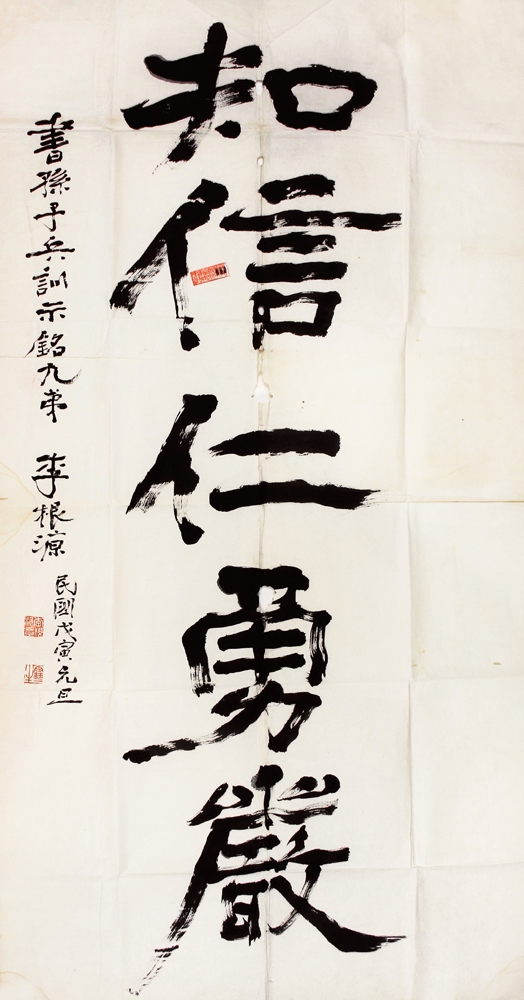 知信仁勇嚴
書孫子兵訓示銘九弟 李根源
民國戊寅元旦